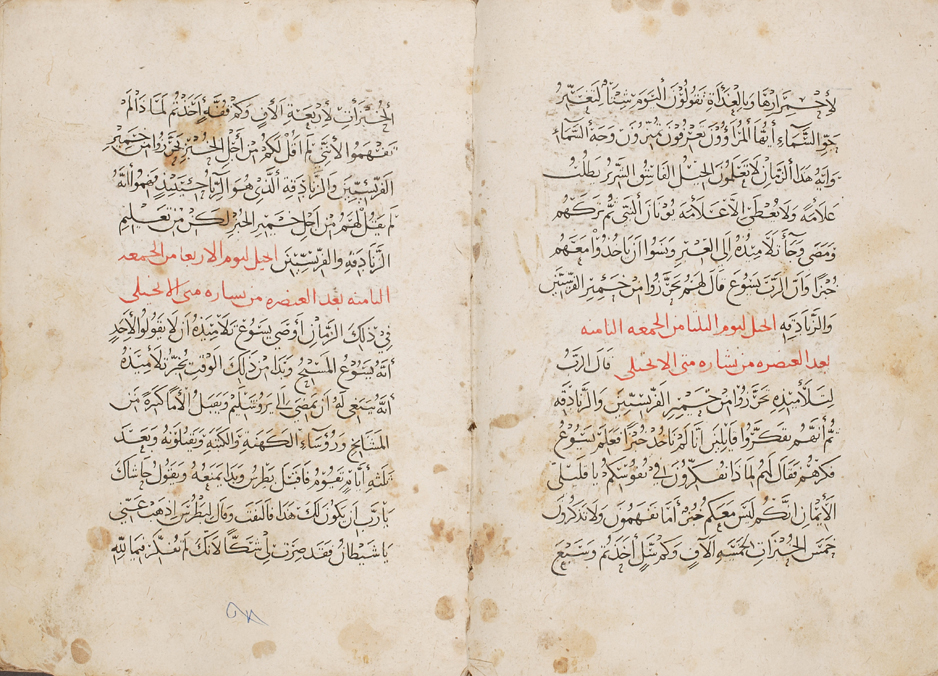 لاِحْمِرَارِهَا وَبِالغَدَاةِ تَقُولُوْنَ اليَوْمَ شِتَآءٌ لِتَغَيُّرِ
جَوِّ السَّمَآءِ أَيُّهَا المُرَاؤُوْنَ تَعْرِفُونَ تُمَيِّزُونَ وَجْهَ السَّمَآءِ
وَآيَةُ هَذَا الزَّمَانِ لَا تَعْلَمُونَ الجِيْلُ الفَاسِقُ الشَّرِيْرُ يَطْلُبُ
عَلَامَةً وَلَا يُعْطَى إِلَّا عَلَامَةَ يُونَانَ النَّبِيِّ ثُمَّ تَرَكَهُمْ
وَمَضَى وَجَآءَ تَلَامِيْذُهُ إِلَى العِبْرِ وَنَسُوا أَنْ يَأْخُذُوْا مَعَهُمْ
خُبْزًا وَأَنَّ الرَّبَّ يَسُوْعَ قَالَ لَهُمْ تَحَرَّزُوا مِنْ خَمِيْرِ الفَرِّيْسِيِّيْنَ
وَالزَّنَادِقَهِ انجيل ليوم الثلثا من الجمعه الثامنه
بعد العنصره من بشاره متى الانجيلي قَالَ الرَّبُّ
لِتَلَامِيْذِهِ تَحَرَّزُوا مِنْ خَمِيْرِ الفَرِّيْسِيِّيْنَ وَالزَّنَادِقَهِ
ثُمَّ أَنَّهُمْ تَفَكَّرُوْا قَآيِلِيْنَ انَّا لَمْ نَاخُذْ خُبْزًا فَعَلِمَ يَسُوْعُ
فِكْرَهُمْ فَقَالَ لَهُمْ لِمَاذَا تُفَكِّرُونَ فِي نُفُوسِكُمْ يا قَلِيْلِي
الأِيْمَانِ انَّكُمْ لَيْسَ مَعَكُمْ خُبْزٌ أَمَا تَفْهَمُونَ وَلَا تَذْكُرُونَ
خَمْسَ الخُبْزَاتِ لِخَمْسَةِ الآفٍ وَكَمْ سَلٍّ أَخَذْتُمْ وَسَبْعَ
الخُبْزَاتِ لِأَرْبَعَةِ الآفٍ وَكَمْ قُفَّةٍ أَخَذْتُمْ لِمَاذَا لَمْ
تَفْهَمُوا لِأَنِّي لَمْ اقُلْ لَكُمْ مِنْ أَجْلِ الخُبْزِ تَحَرَّزُوا مِنْ خَمِيْرِ
الفَرِّيْسِيِّيْنَ وَالزَّنَادِقَةِ الَّذِي هُوَ الرِّيَآءُ حِيْنَيِذٍ فَهِمُوا أَنَّهُ
لَمْ يَقُلْ لَهُمْ مِنْ أَجْلِ خَمِيْرِ الخُبْزِ لَكِنْ مِنْ تَعْلِيْمِ
الزَّنَادِقَهِ وَالفَرِّيْسِيِّيْنَ انجيل ليوم الاربعا من الجمعه
الثامنه بعد العنصره من بشاره متى الانجيلي
فِي ذَلِكَ الزَّمَانِ أَوْصَى يَسُوْعُ تَلَامِيْذَهُ أَنْ لَا يَقُولُوا لِأَحَدٍ
أَنَّهُ يَسُوْعُ المَسِيْحُ وَبَدَا مِنْ ذَلِكَ الوَقْتِ يُخْبِرُ تَلَامِيْذَهُ
أَنَّهُ يَنْبَغِي لَهُ أَنْ يَمْضِيَ إِلَى يَرُوشَلِيْمَ وَيَقْبَلَ الأَمًا كَثِيْرَةً مِنَ
المَشَايِخِ وَرُؤَسَآءِ الكَهَنَةِ وَالكَتَبَةِ وَيَقْتُلُوْنَهُ وَبَعْدَ
ثَلَثَةِ أَيَّامٍ يَقُوْمُ فَاقْبَلَ بُطْرُسُ وَبَدَا يَمْنَعُهُ وَيَقُولُ حَاشَاكَ
يَا رَبُّ أَنْ يَكُونَ لَكَ هَذَا فَالتَفَتَ وَقَالَ لِبُطْرُسَ اذْهَبْ عَنِّي
يَا شَيْطَانُ فَقَدْ صِرْتَ لِي شَكًّا لِأَنَّكَ لَمْ تُفَكِّرْ فِيْمَا لِلّهِ